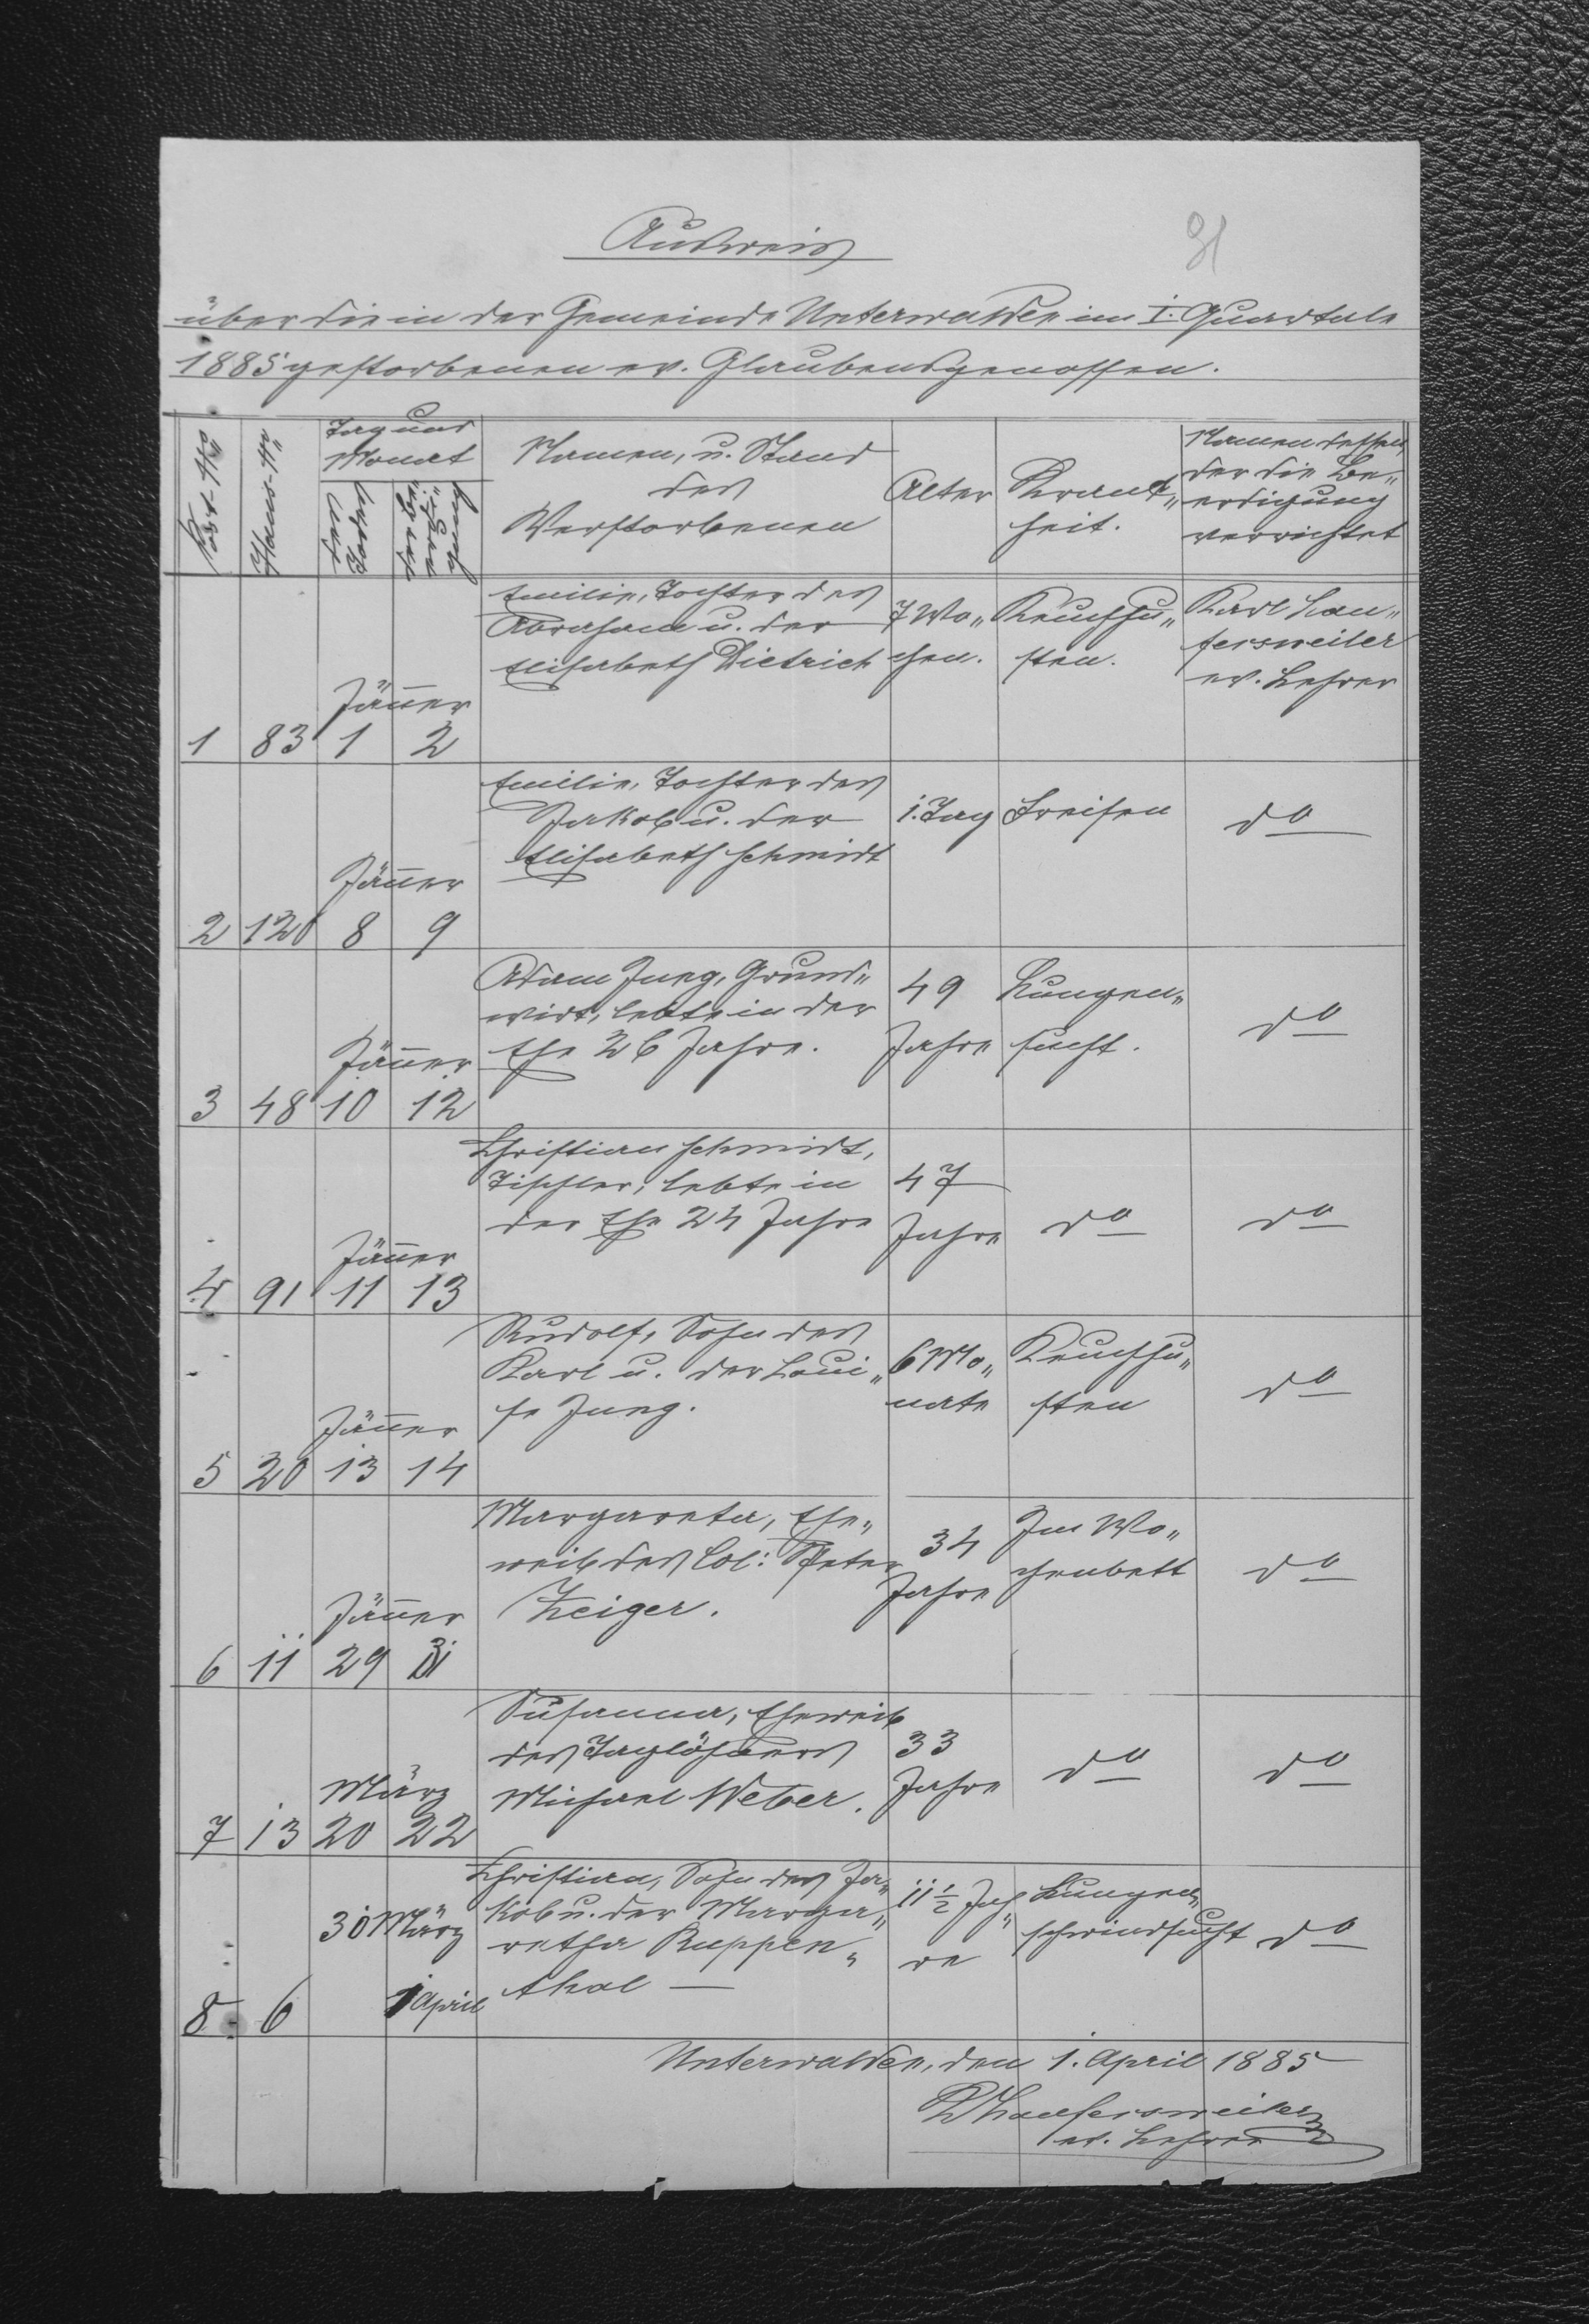 Ausweis
31
über die in der Gemeinde Unterwalden im I. Quartale
1885 gestorbenen ev. Glaubensgenossen.
Post-Nro
Haus-Nr
Tag und
Monat
des
Todes
der Be„
erdi„
gung
Namen, u. Stand
des
Verstorbenen
Alter
Krank„
heit.
Namen dessen,
der die Be„
erdigung
verrichtet
Emilie, Tochter des
Abraham u. der
Elisabeth Dietrich
7 Wo„
chen.
Keuchhu„
sten.
Karl Lau„
fersweiler
ev. Lehrer
Jänner
1 83 1 2
Emilie, Tochter des
Jakob u. der
Elisabeth Schmidt
1. Tag
Freisen
do
Jänner
2 120 8 9
Adam Jung, Grund„
wirt, lebte in der
Ehe 26 Jahre.
49
Jahre
Lungen„
sucht.
do
Jänner
3 48 10 12
Christian Schmidt,
Tischler, lebte in
der Ehe 24 Jahre
47
Jahre
do
do
Jänner
4 91 11 13
Rudolf, Sohn des
Karl u. der Loui„
se Jung.
6 Mo„
nate
Keuchhu„
sten
do
Jänner
5 20 13 14
Margareta, Ehe„
weib des Col: Peter
Zeiger.
34
Jahre
Im Wo„
chenbett
do
Jänner
6 11 29 31
Susanna, Eheweib
des Taglöhners
Michael Weber.
33
Jahre
do
do
März
7 13 20 22
Christian, Sohn des Ja„
kob u. der Marga„
retha Ruppen„
thal —
11 1/2 Jah„
re
Lungen„
schwindsucht
do
30 März
8 6 1 April
Unterwalden, den 1. April 1885
K Laufersweiler
ev. Lehrer